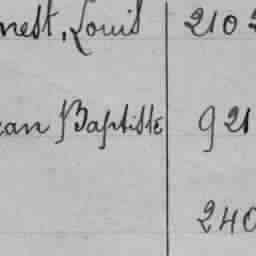 nest, Louis 2102
ean Baptiste 921
240